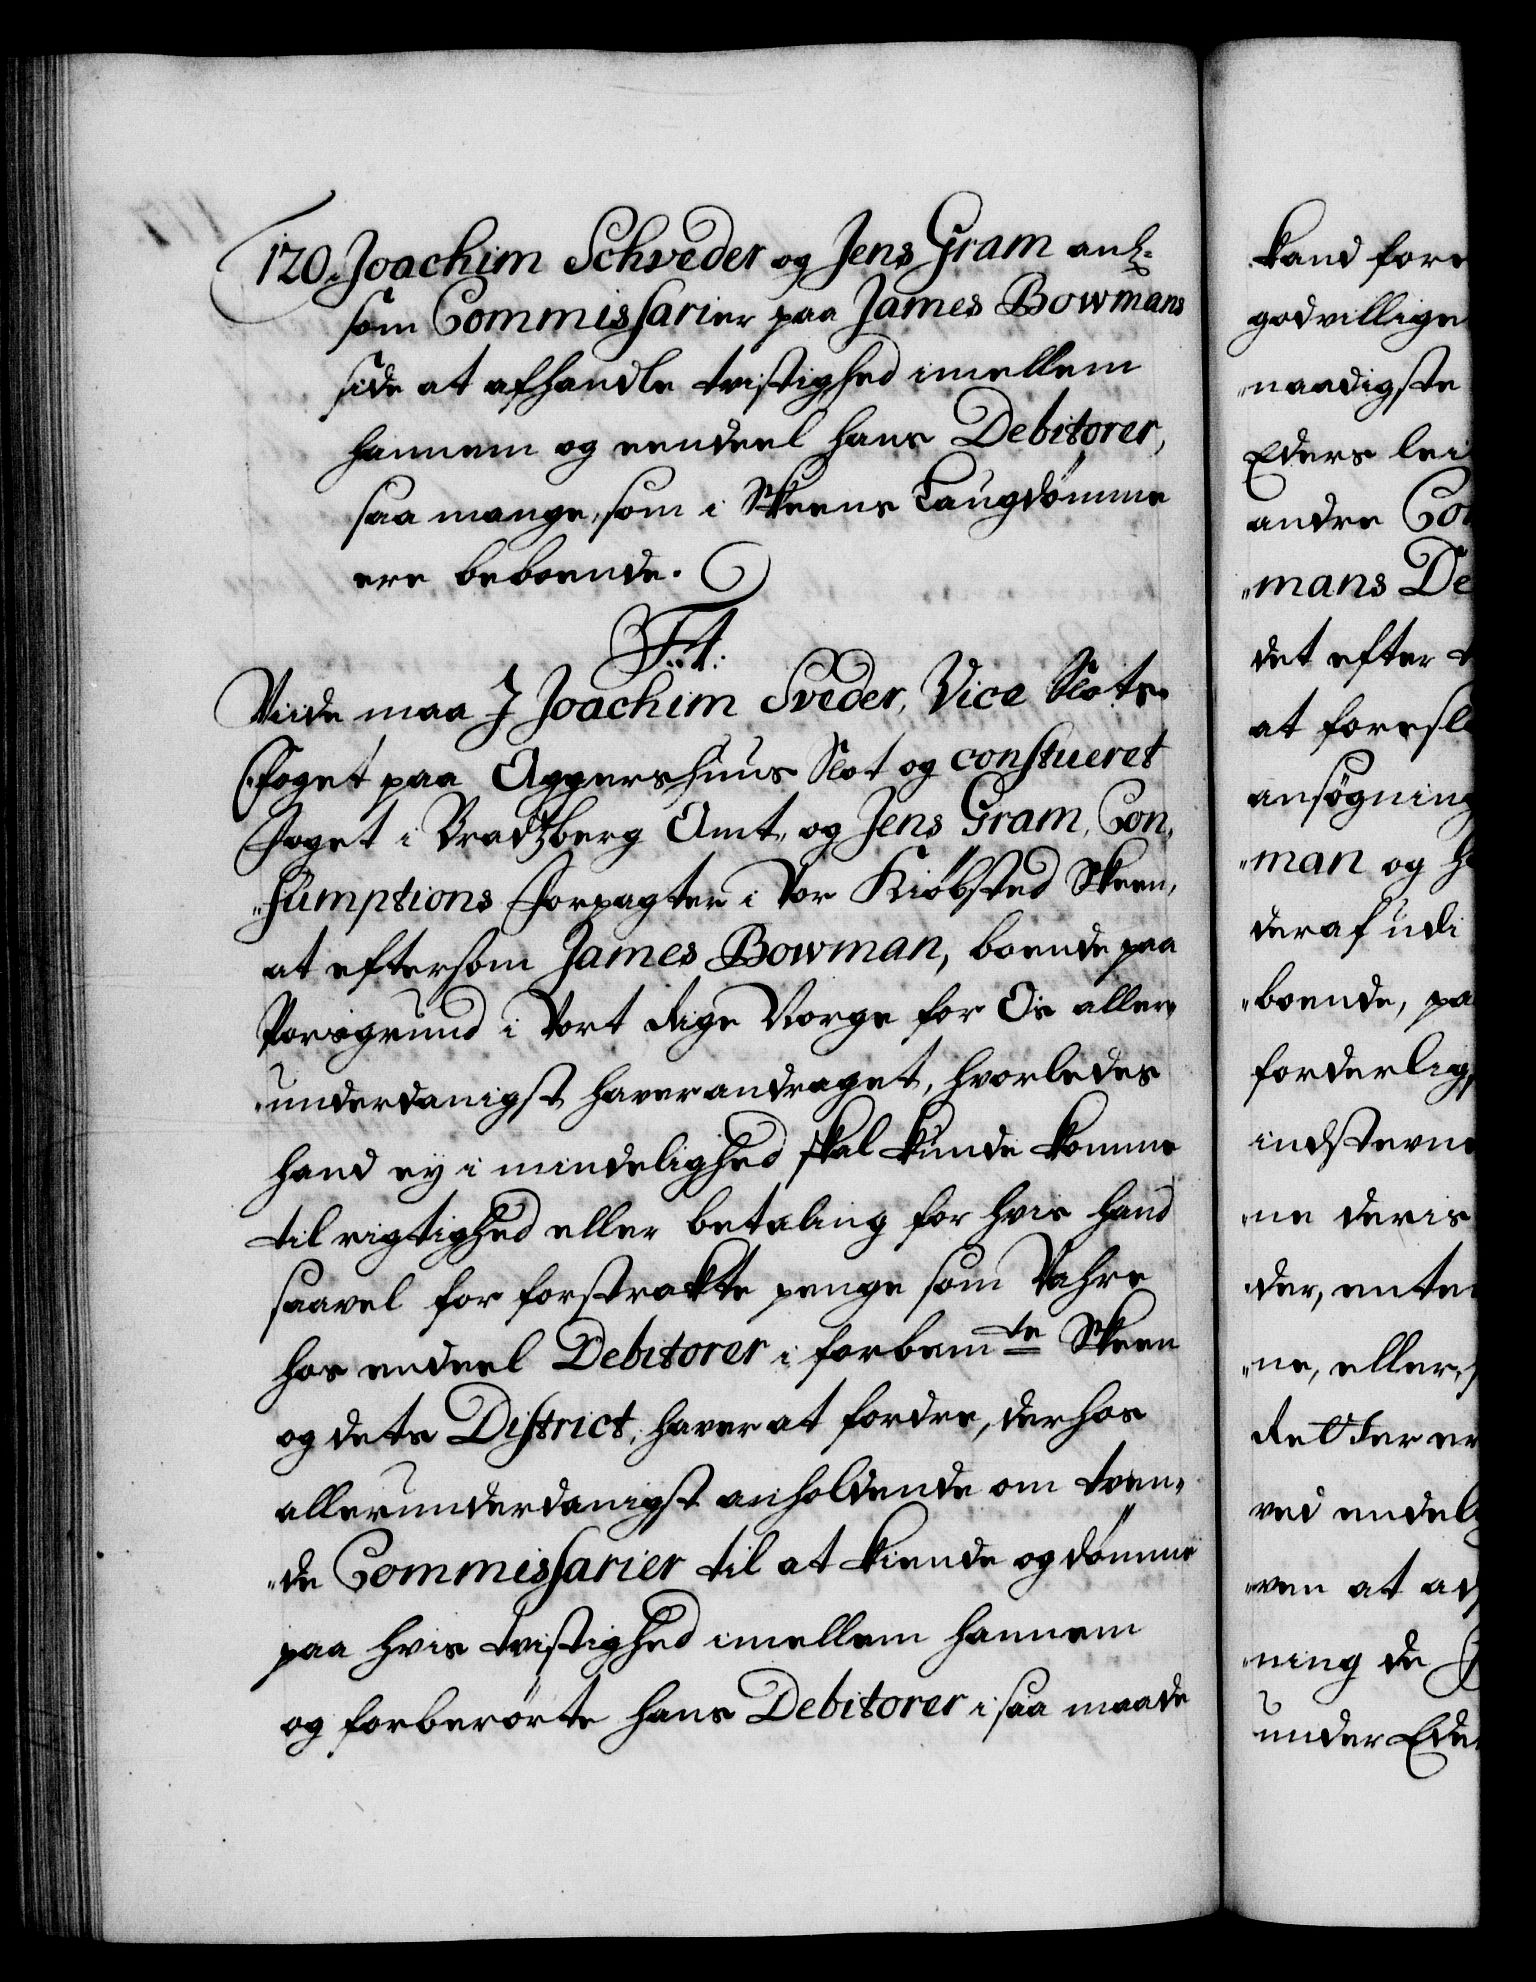 120. Joachim Schveder og Jens Gram anl:
som Commissarier paa James Bowmans
side at afhandle tvistighed imellem
hannem og eendeel hans Debitorer,
saa mange, som i Skeens Laugdömme
ere beboende.
F. 4.
Viide maa I Joachim Sveder, Vice Slots-
Foget paa Aggershuus Slot og constueret
Foget i Bradtzberg Amt, og Jens Gram, Con-
sumptions Forpagter i Vor Kiöbsted Skeen,
at eftersom James Bowman, boende paa
Porsgrund i Vort Rige Norge for Os aller-
underdanigst haver andraget, hvorledes
hand ey i mindelighed skal kunde komme
til rigtighed eller betaling for hvis hand
saavel for forstrakte penge som Vahre
hos endeel Debitorer i forbemte Skeen
og dets District, haver at fordre, derhos
allerunderdanigst anholdende om tven-
de Commissarier til at kiende og dömme
paa hvis tvistighed imellem hannem
og forberörte hans Debitorer i saa maade
kand fore
godvillige
naadigste
Eders lei
andre Co
mans De
det efter
at foresl
ansögning
man og h
deraf udi
boende, pa
forderlig
indsterne
ne deris
der, ente
ne, eller
detter er
ved endel
ven at ad
ning de
under Ede